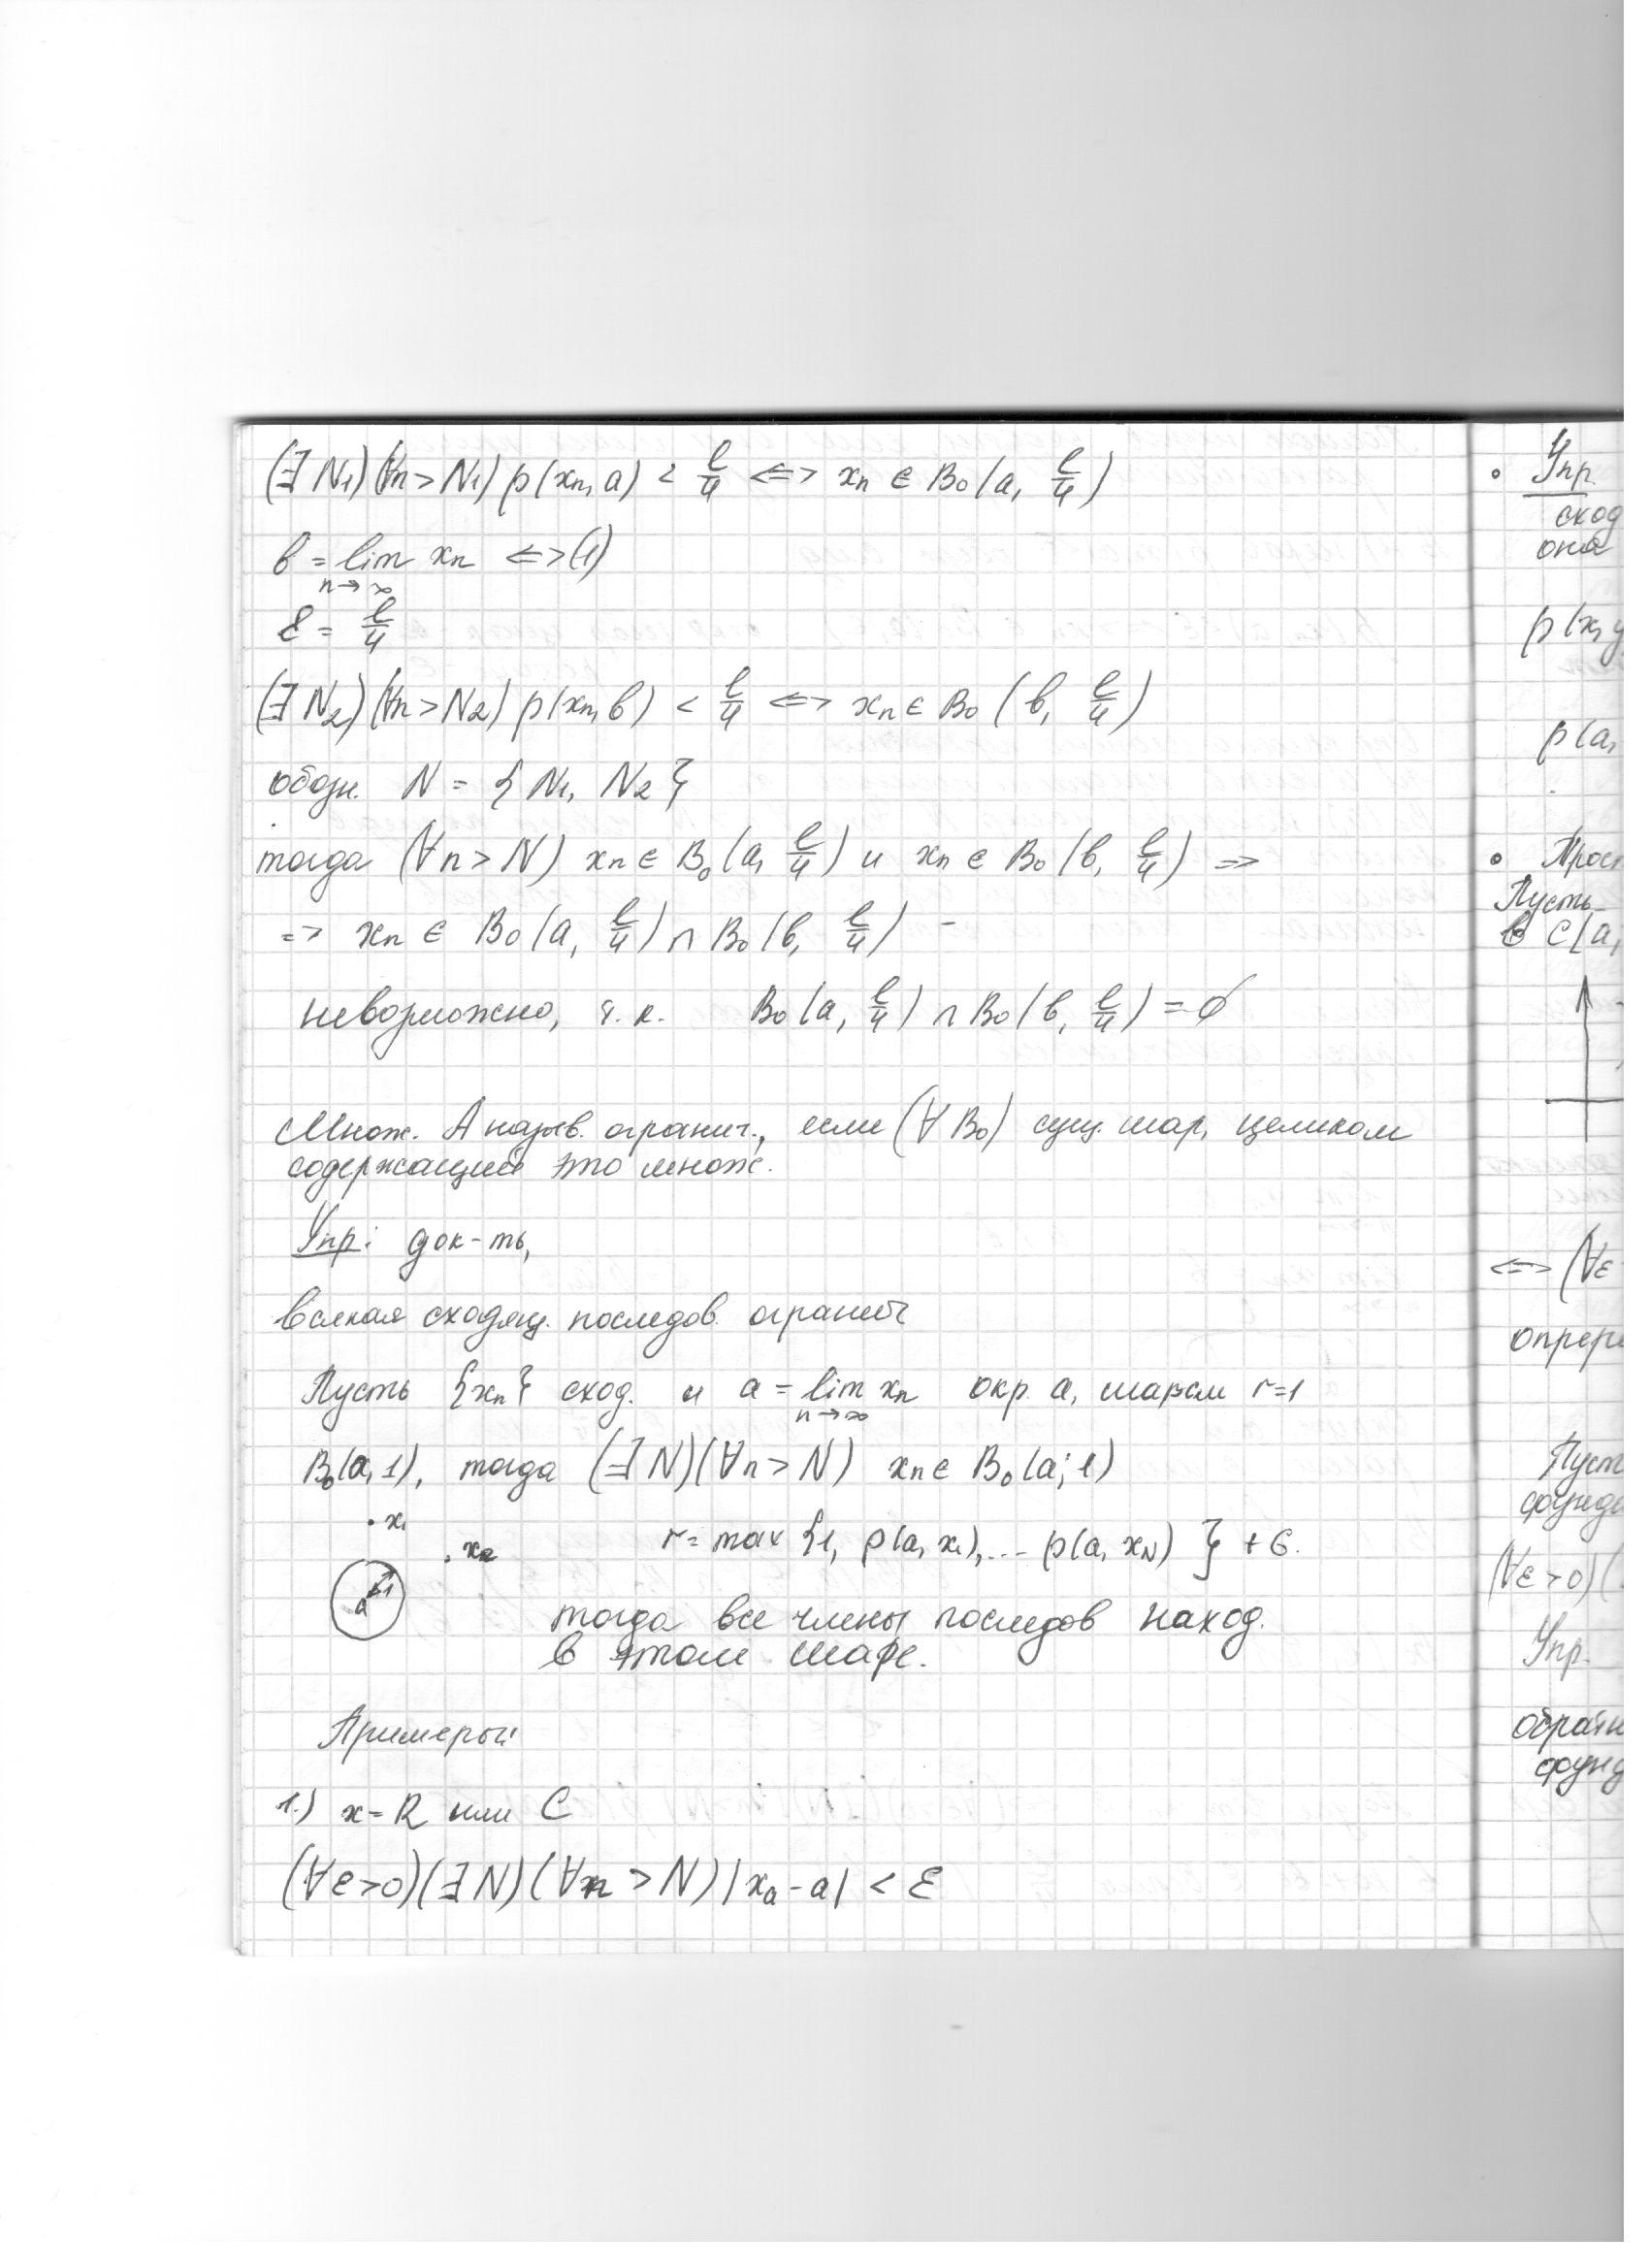 (∃ N₁)(∀n > N₁) ρ(xₙ, a) < l/4 <=> xₙ ∈ B₀(a, l/4)
b = lim xₙ <=> (1)
n→∞
ε = l/4
(∃ N₂)(∀n > N₂) ρ(xₙ, b) < l/4 <=> xₙ ∈ B₀(b, l/4)
обозн. N = {N₁, N₂}
тогда (∀n > N) xₙ ∈ B₀(a, l/4) и xₙ ∈ B₀(b, l/4) =>
=> xₙ ∈ B₀(a, l/4) ∩ B₀(b, l/4) -
невозможно, т.к. B₀(a, l/4) ∩ B₀(b, l/4) = ∅
Множ. A назыв. огранич., если (∀ B₀) сущ. шар, целиком
содержащий это множ.
Упр: док-ть,
всякая сходящ. последов. огранич
Пусть {xₙ} сход. и a = lim xₙ окр. a, шаром r=1
n→∞
B₀(a, 1), тогда (∃ N)(∀n > N) xₙ ∈ B₀(a; 1)
x₁
x₂
r = max {1, ρ(a, x₁),... ρ(a, x_N)} + 6.
a 1
тогда все члены последов наход.
в этом шаре.
Примеры:
1.) x = R или C
(∀ε>0)(∃N)(∀n > N) |xₙ - a| < ε
Упр.
сход
она
ρ(x, y
ρ(a,
Прос
Пусть
в C[a,
<=> (∀ε
опреде
Пуст
фунда
(∀ε > 0)(
Упр.
обратн
фунд